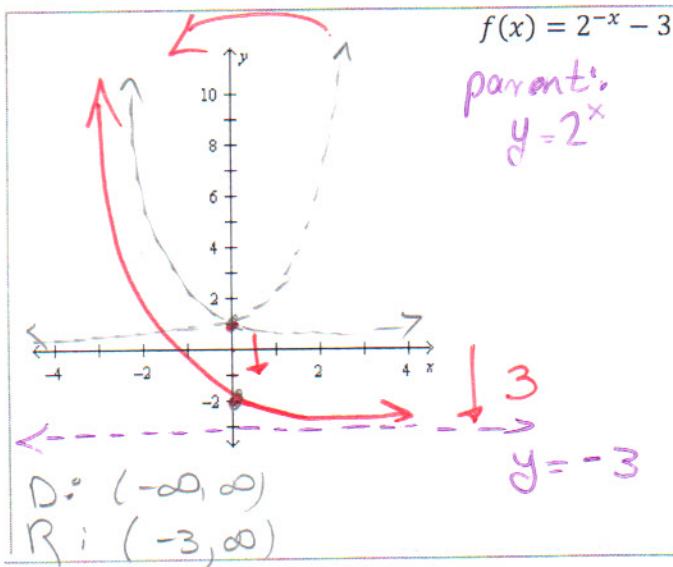 f(x) = 2^{-x} − 3
parent:
y = 2^x
y
10
8
6
4
2
-4
-2
2
4
x
-2
3
y = -3
D: (-∞, ∞)
R: (-3, ∞)